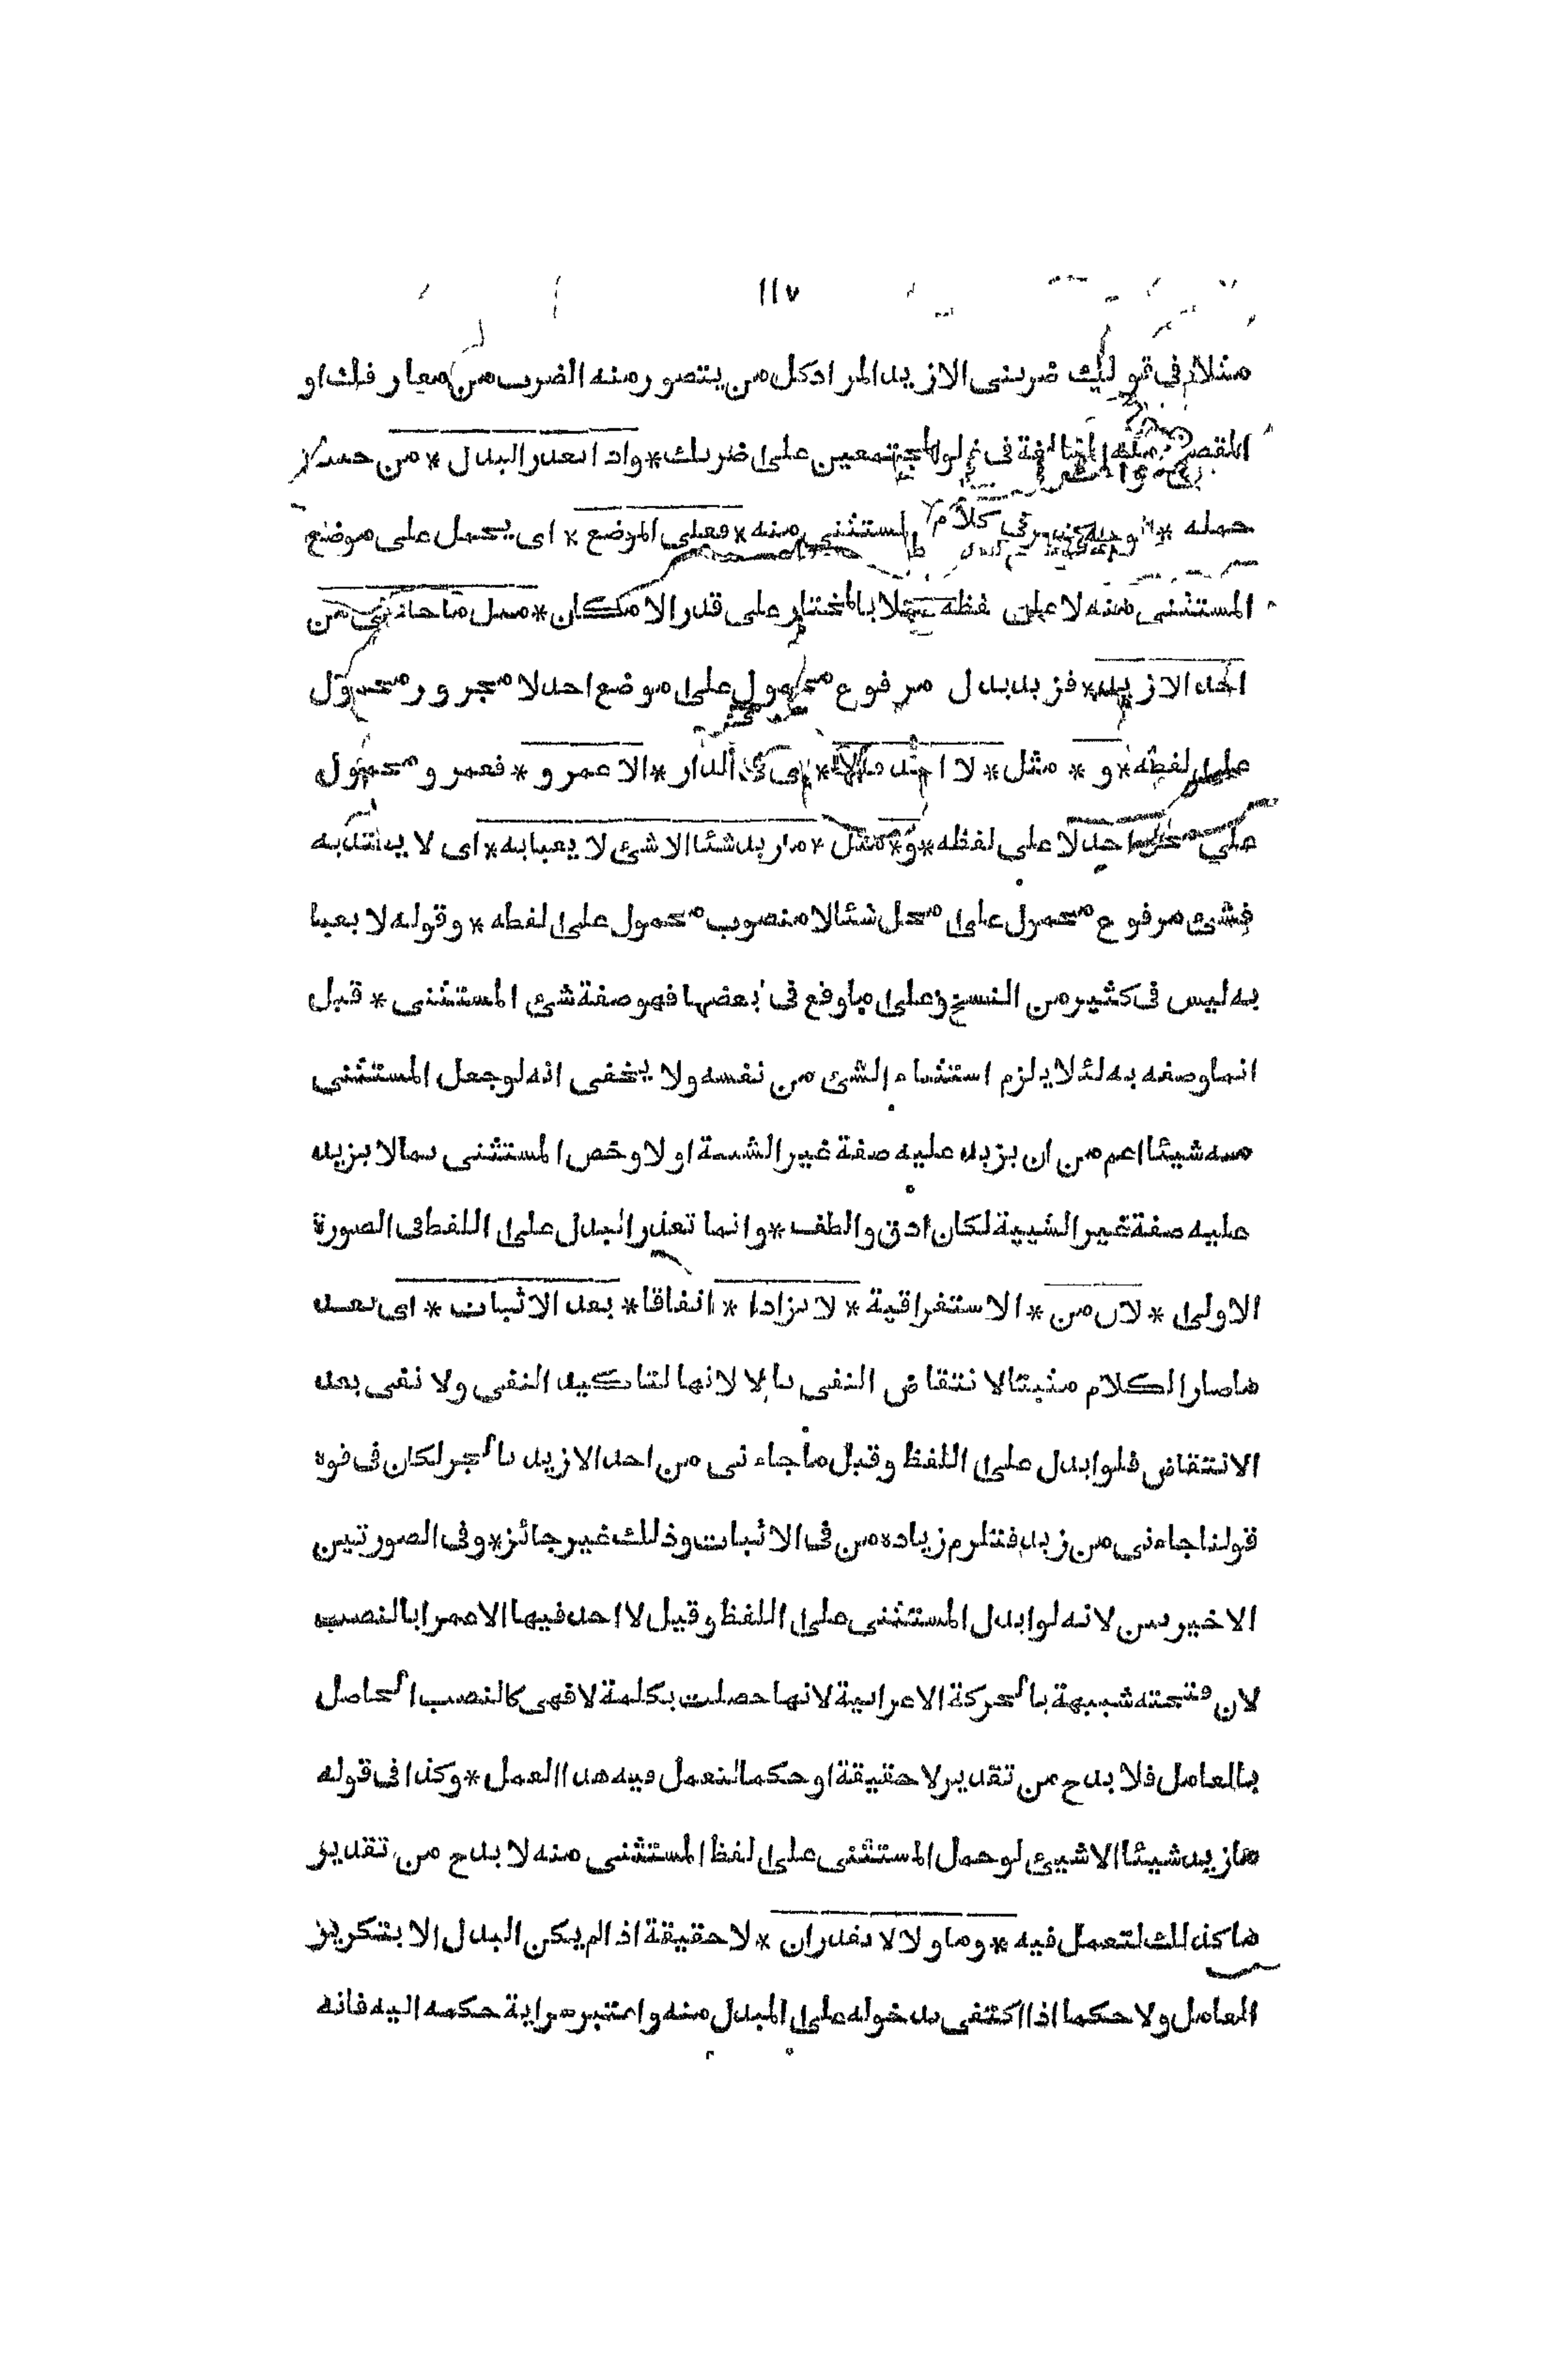 ١١٧
مثلا في قولك ضربنى الا زيد المراد كل من يتصور منه الضرب من معارفك او
المقصود منه المبالغة فى غلو المجتمعين على ضربك * واذا تعذر البدل * من حيث
حمله * المستثنى منه * فعلى الموضع * اى يحمل على موضع
المستثنى منه لا على لفظه عملا بالمختار على قدر الامكان * مثل ما جاءنى من
احد الا زيد * فزيد بدل مرفوع محمول على موضع احد لا مجرور محمول
على لفظه * و * مثل * لا احد فيها * اى فى الدار * الا عمرو * فعمرو محمول
على محل احد لا على لفظه * و * مثل * ما زيد شئا الا شئ لا يعبا به * اى لا يعتد به
فشئ مرفوع محمول على محل شئا لا منصوب محمول على لفظه * وقوله لا يعبا
به ليس فى كثير من النسخ وعلى ما وقع فى بعضها فهو صفة شئ المستثنى * قيل
انما وصفه به لئلا يلزم استثناء الشئ من نفسه ولا يخفى انه لو جعل المستثنى
منه شيئا اعم من ان يزيد عليه صفة غير الشيئة او لا وخص المستثنى بما لا يزيد
عليه صفة غير الشيئية لكان ادق والطف * وانما تعذر البدل على اللفظ فى الصورة
الاولى * لان من * الاستغراقية * لا تزاد * اتفاقا * بعد الاثبات * اى بعد
ما صار الكلام مثبتا لانتقاض النفى بالا لانها لتاكيد النفى ولا نفى بعد
الانتقاض فلو ابدل على اللفظ وقيل ما جاءنى من احد الا زيد بالجر لكان فى قوة
قولنا جاءنى من زيد فتلزم زيادة من فى الاثبات وذلك غير جائز * وفى الصورتين
الاخيرتين لانه لو ابدل المستثنى على اللفظ وقيل لا احد فيها الا عمرا بالنصب
لان فتحته شبيهة بالحركة الاعرابية لانها حصلت بكلمة لا فهى كالنصب الحاصل
بالعامل فلا بد ح من تقدير لا حقيقة او حكما لتعمل فيه هذا العمل * وكذا فى قوله
ما زيد شيئا الا شيئ لو حمل المستثنى على لفظ المستثنى منه لا بد ح من تقدير
ما كذلك لتعمل فيه * وما ولا لا تقدران * لا حقيقة اذا لم يكن البدل الا بتكرير
العامل ولا حكما اذا اكتفى بدخوله على المبدل منه واعتبر سراية حكمه اليه فانه